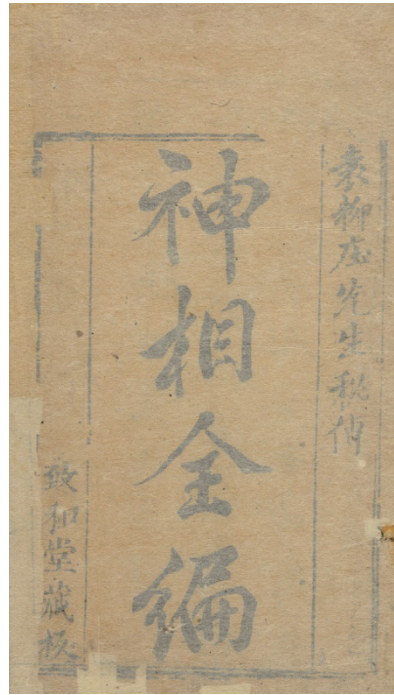 袁柳庄先生秘傳
神相全編
致和堂藏板